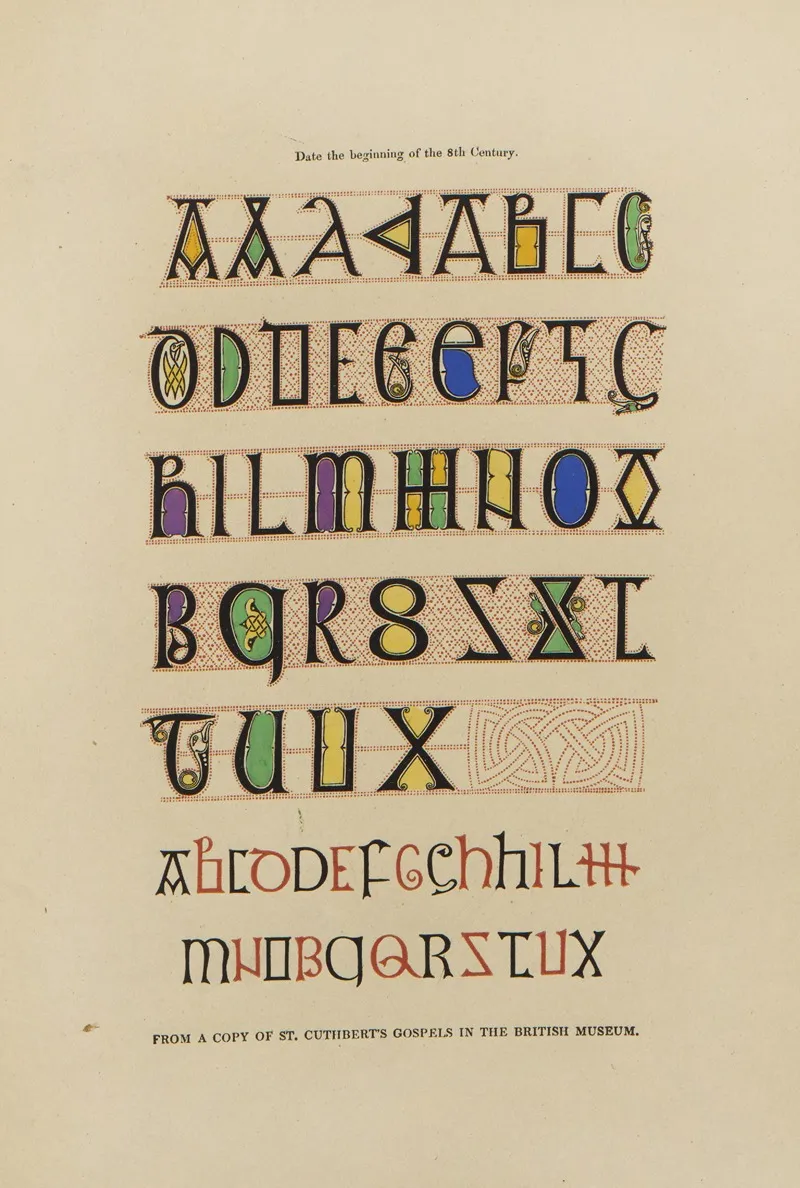 Date the beginning of the 8th Century.
A A A A A B C C
D D D E E E F F G
H I L M M N O O
P Q R S S X T
T U U X
A B C D D E F G G H h I L M
M N O P Q Q R S T U X
FROM A COPY OF ST. CUTHBERT'S GOSPELS IN THE BRITISH MUSEUM.